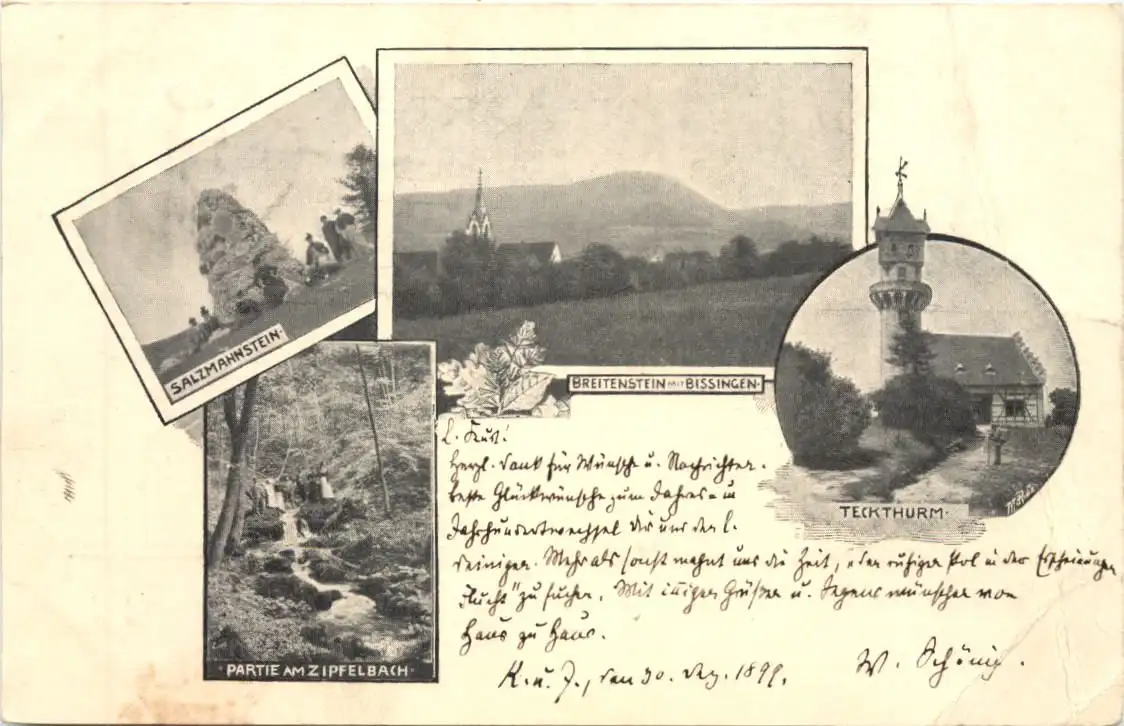 SALZMANNSTEIN·
BREITENSTEIN MIT BISSINGEN·
TECKTHURM·
·PARTIE AM ZIPFELBACH·
L. Kurt!
Herzl. Dank für Wünsche u. Nachrichten.
Beste Glückwünsche zum Jahres- u
Jahrhundertwechsel dir und den l.
deinigen. Mehr als sonst mahnt uns die Zeit, „den ruhigen Pol in der Erscheinungen
Flucht" zu suchen. Mit innigen Grüßen u. Segenswünschen von
Haus zu Haus.
K. u. J., den 30. Dez. 1899.
W. Schönig.